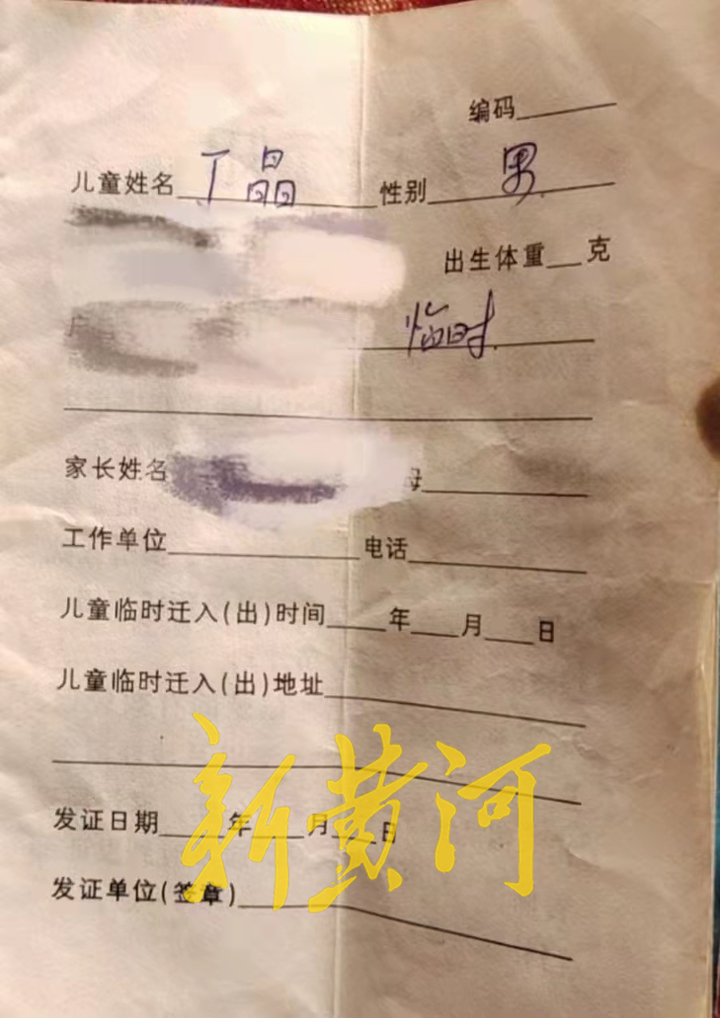 编码______
儿童姓名 丁晶 性别 男
出生体重___克
临时
家长姓名 母______
工作单位______电话______
儿童临时迁入(出)时间____年___月___日
儿童临时迁入(出)地址______
新黄河
发证日期____年___月___日
发证单位(签章)______